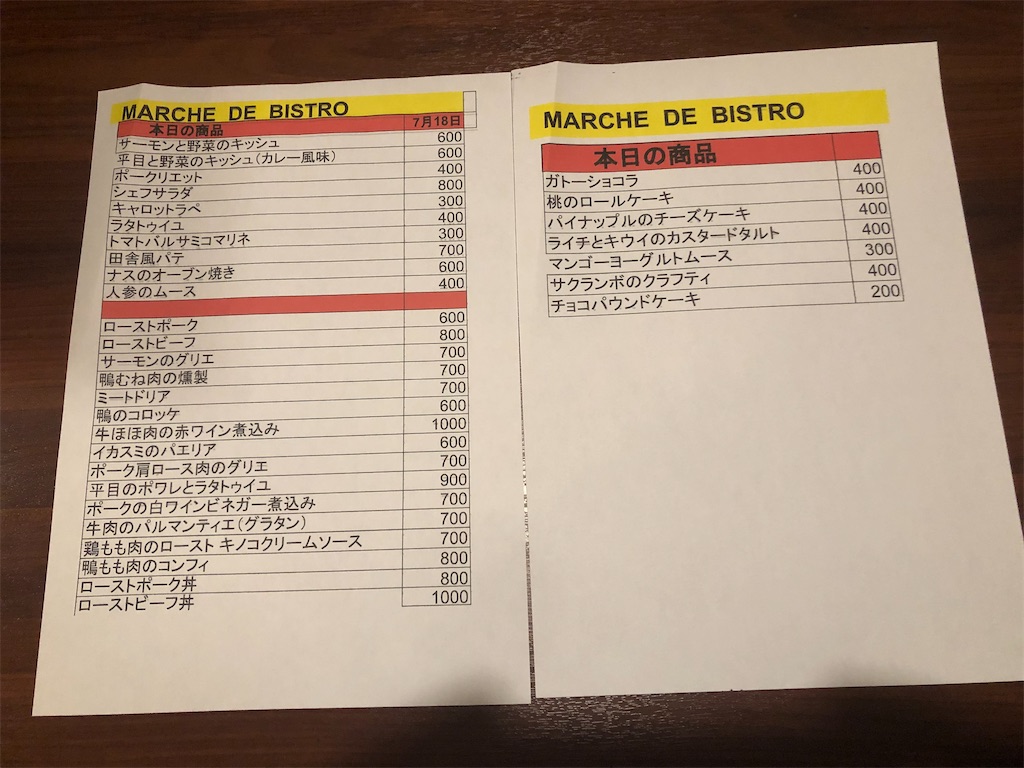 MARCHE DE BISTRO
本日の商品 7月18日
サーモンと野菜のキッシュ 600
平目と野菜のキッシュ(カレー風味) 600
ポークリエット 400
シェフサラダ 800
キャロットラペ 300
ラタトゥイユ 400
トマトバルサミコマリネ 300
田舎風パテ 700
ナスのオーブン焼き 600
人参のムース 400
ローストポーク 600
ローストビーフ 800
サーモンのグリエ 700
鴨むね肉の燻製 700
ミートドリア 700
鴨のコロッケ 600
牛ほほ肉の赤ワイン煮込み 1000
イカスミのパエリア 600
ポーク肩ロース肉のグリエ 700
平目のポワレとラタトゥイユ 900
ポークの白ワインビネガー煮込み 700
牛肉のパルマンティエ(グラタン) 700
鶏もも肉のロースト キノコクリームソース 700
鴨もも肉のコンフィ 800
ローストポーク丼 800
ローストビーフ丼 1000
MARCHE DE BISTRO
本日の商品
ガトーショコラ 400
桃のロールケーキ 400
パイナップルのチーズケーキ 400
ライチとキウイのカスタードタルト 400
マンゴーヨーグルトムース 300
サクランボのクラフティ 400
チョコパウンドケーキ 200